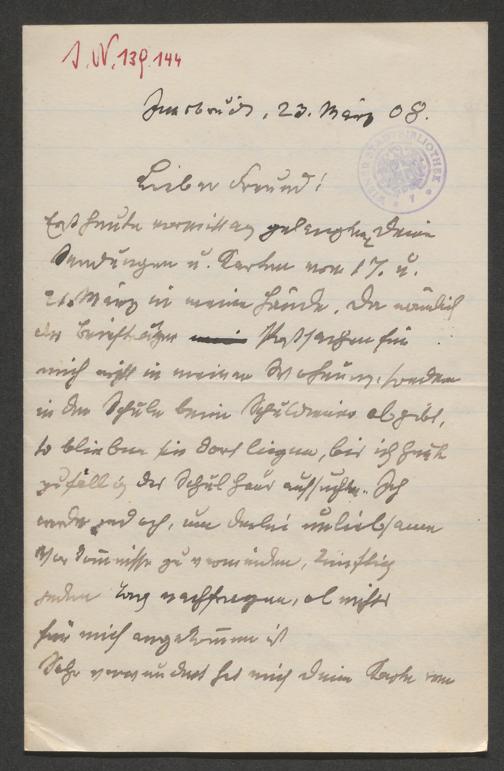 J.N. 139.144
WIENER STADTBIBLIOTHEK
Innsbruck, 23. März 08.
Lieber Freund!
Erst heute vormittag gelangten Deine
Sendungen u. Karten vom 17. u.
21. März in meine Hände. Da nämlich
der Briefträger Postsachen für
mich nicht in meiner Wohnung, sondern
in der Schule beim Schuldiener abgibt,
so blieben sie dort liegen, bis ich heute
zufällig das Schulhaus aufsuchte. Ich
werde jedoch, um derlei unliebsame
Vorkommnisse zu vermeiden, künftig
jeden Tag nachfragen, ob nichts
für mich angekommen ist
Sehr verwundert hat mich Deine Karte vom